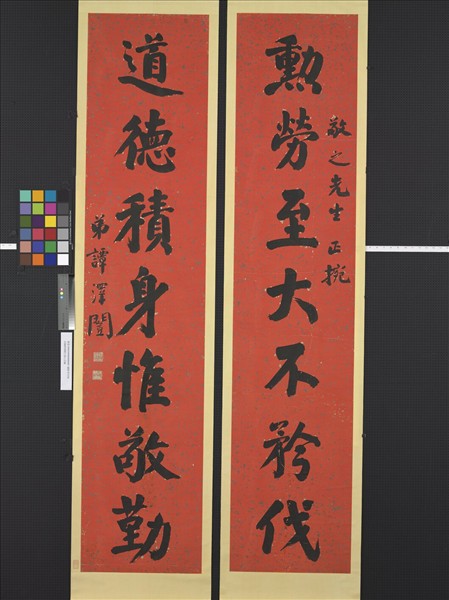 勲勞至大不矜伐
敬之先生正捥
道德積身惟敬勤
弟譚澤闓